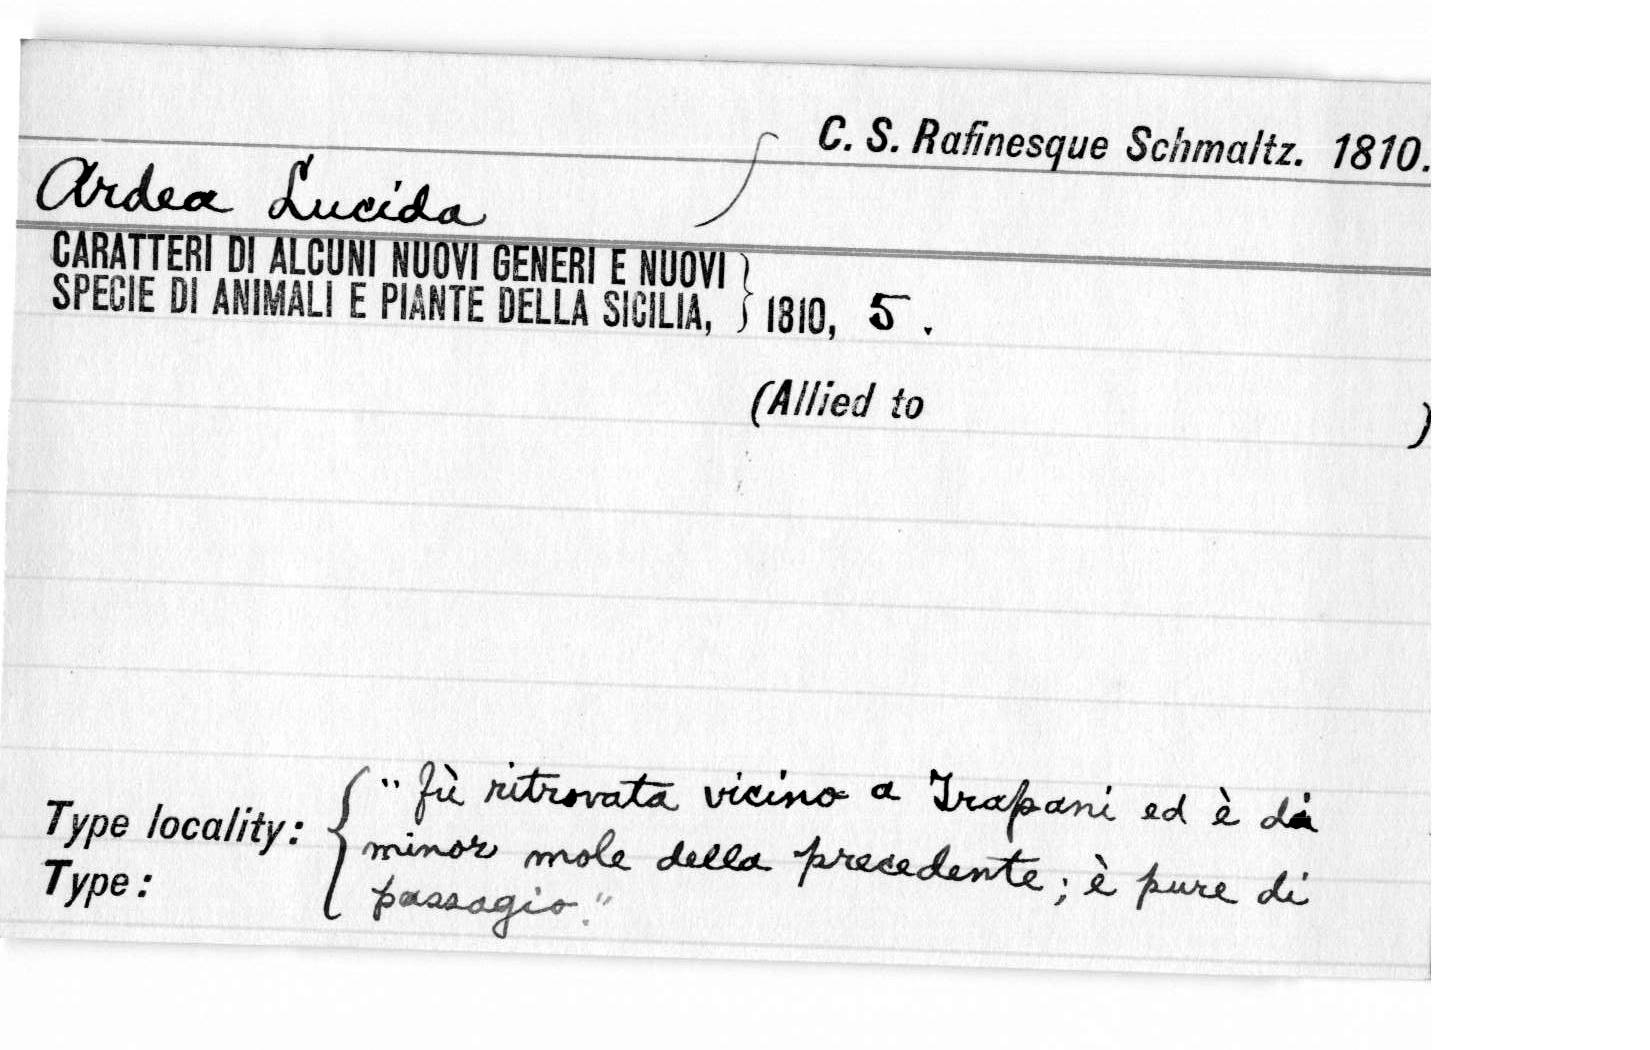 C. S. Rafinesque Schmaltz. 1810.
Ardea Lucida
CARATTERI DI ALCUNI NUOVI GENERI E NUOVI
SPECIE DI ANIMALI E PIANTE DELLA SICILIA, } 1810, 5.
(Allied to )
Type locality: { "fù ritrovata vicino a Trapani ed è di
minor mole della precedente; è pure di
Type: passagio."